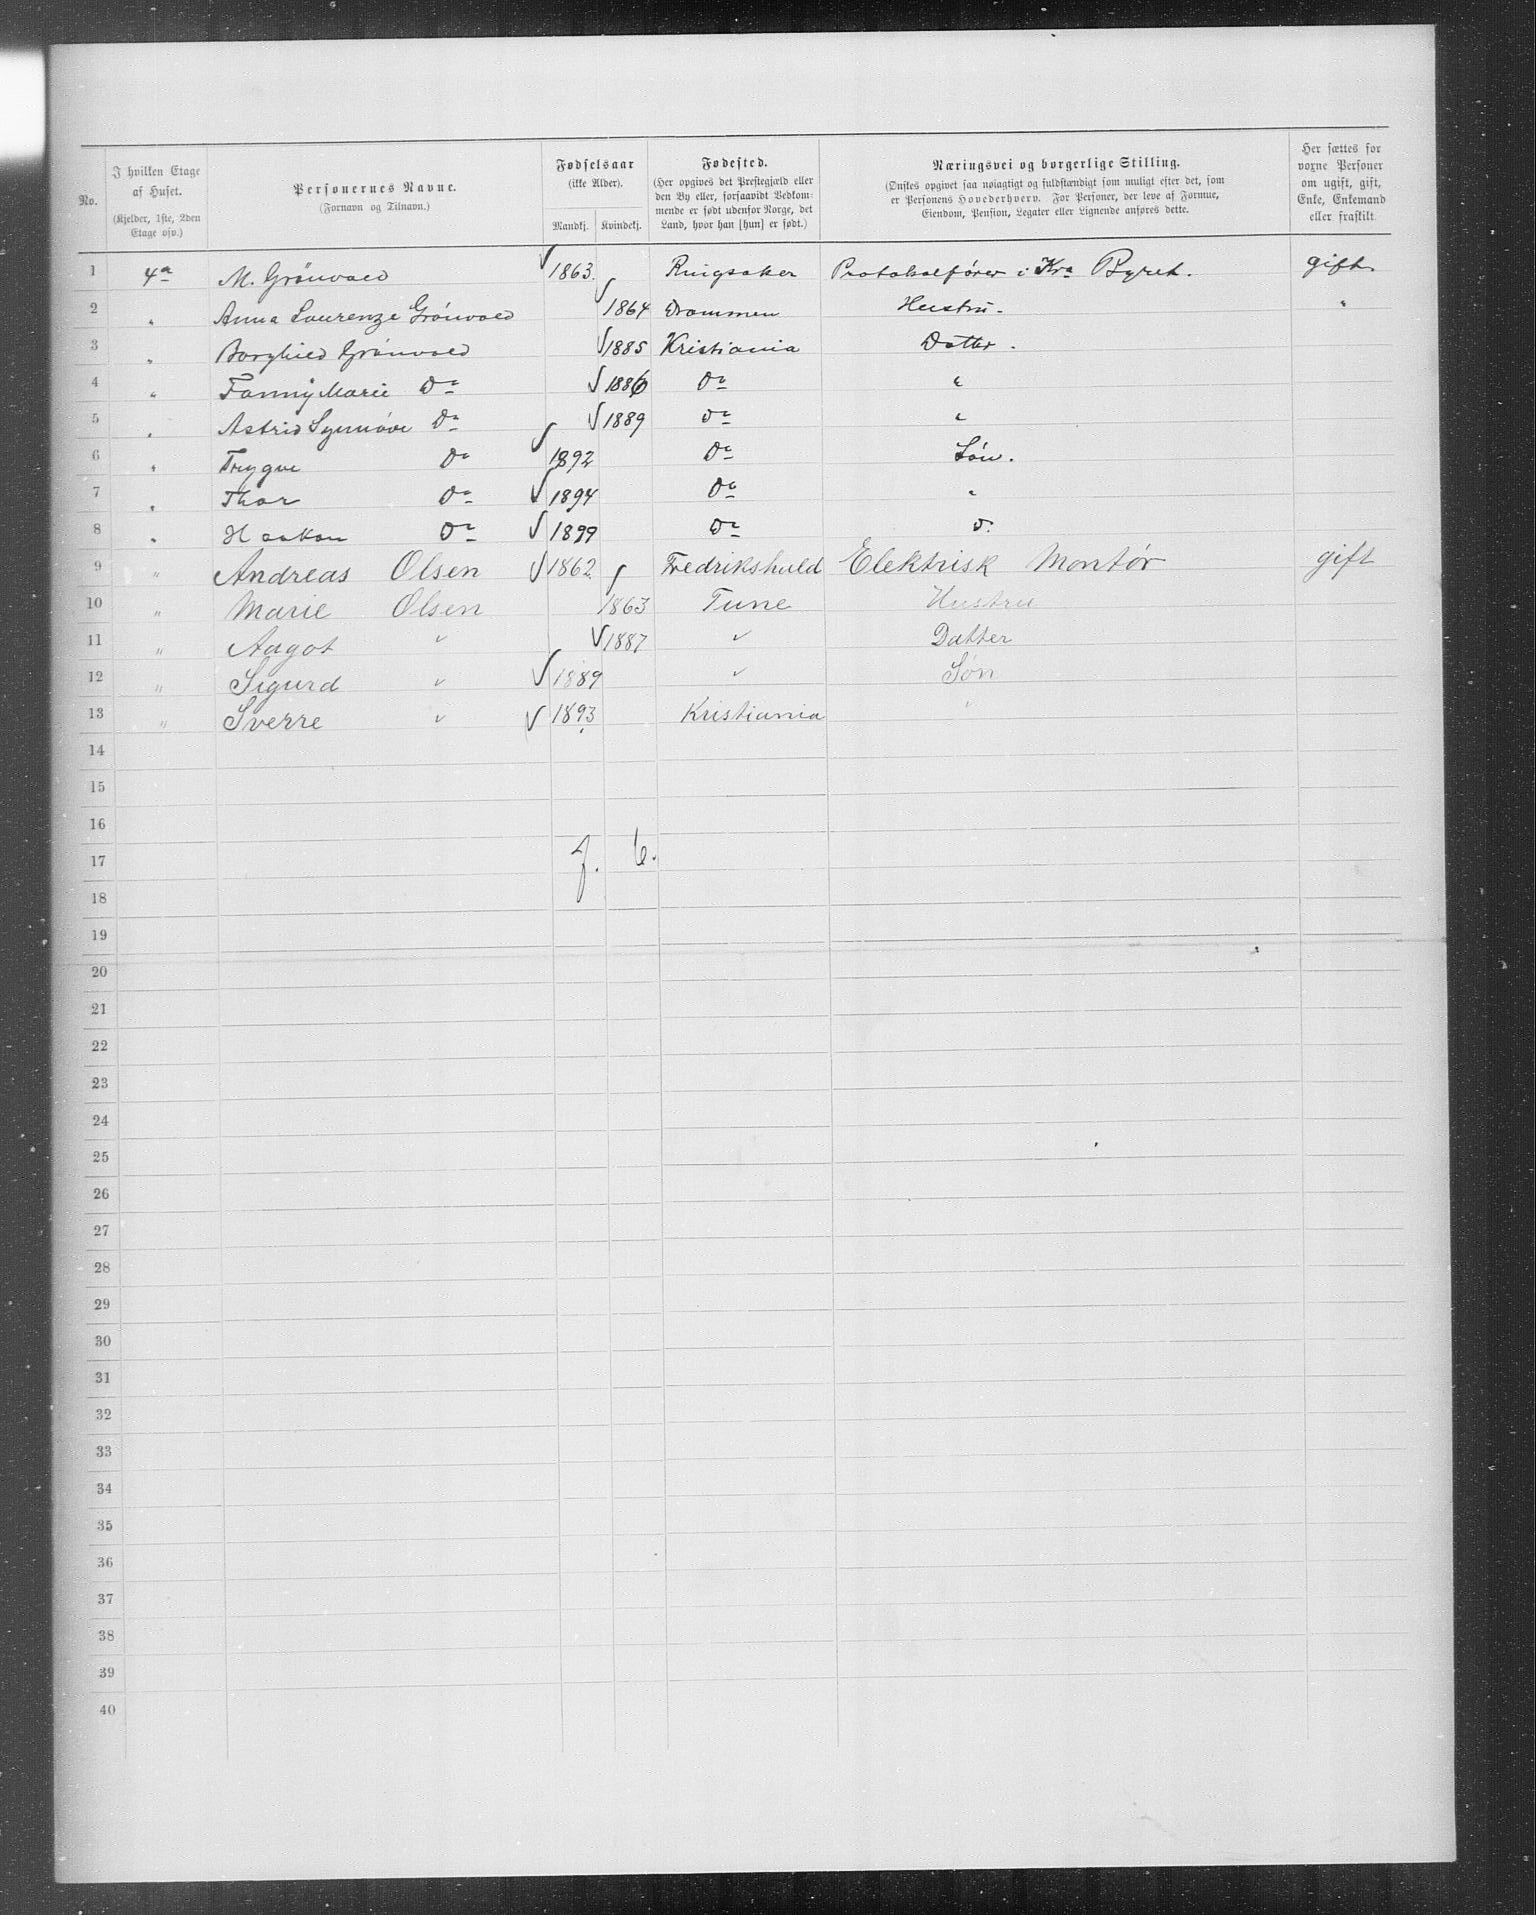 No.	I hvilken Etage af Huset. (Kjelder, 1ste, 2den Etage osv.)	Personernes Navne. (Fornavn og Tilnavn.)	Fødselsaar (ikke Alder). Mandkj. Kvindekj.	Fødested. (Her opgives det Prestegjæld eller den By eller, forsaavidt Vedkommende er født udenfor Norge, det Land, hvor han [hun] er født.)	Næringsvei og borgerlige Stilling. (Ønskes opgivet saa nøiagtigt og fuldstændigt som muligt efter det, som er Personens Hovederhverv. For Personer, der leve af Formue, Eiendom, Pension, Legater eller Lignende anføres dette.	Her sættes for voxne Personer om ugift, gift, Enke, Enkemand eller fraskilt.
1 4a M. Grönvold √ 1863. Ringsaker Protokolfører i Kra Byret. gift.
2 " Anna Laurenze Grönvold √ 1864 Drammen Hustru. "
3 " Borghild Grönvold √ 1885 Kristiania Datter.
4 " Fanny Marie Do √ 1886 Do "
5 " Astrid Synnöve Do √ 1889 Do "
6 " Trygve Do √ 1892 Do Søn.
7 " Thor Do √ 1894 Do "
8 " Haakon Do √ 1899 Do D.
9 " Andreas Olsen √ 1862 Fredrikshald Elektrisk Montør gift
10 " Marie Olsen √ 1863 Tune Hustru
11 " Aagot " √ 1887 " Datter
12 " Sigurd " √ 1889 " Søn
13 " Sverre " √ 1893 Kristiania "
14
15
16
17 7. 6.
18
19
20
21
22
23
24
25
26
27
28
29
30
31
32
33
34
35
36
37
38
39
40